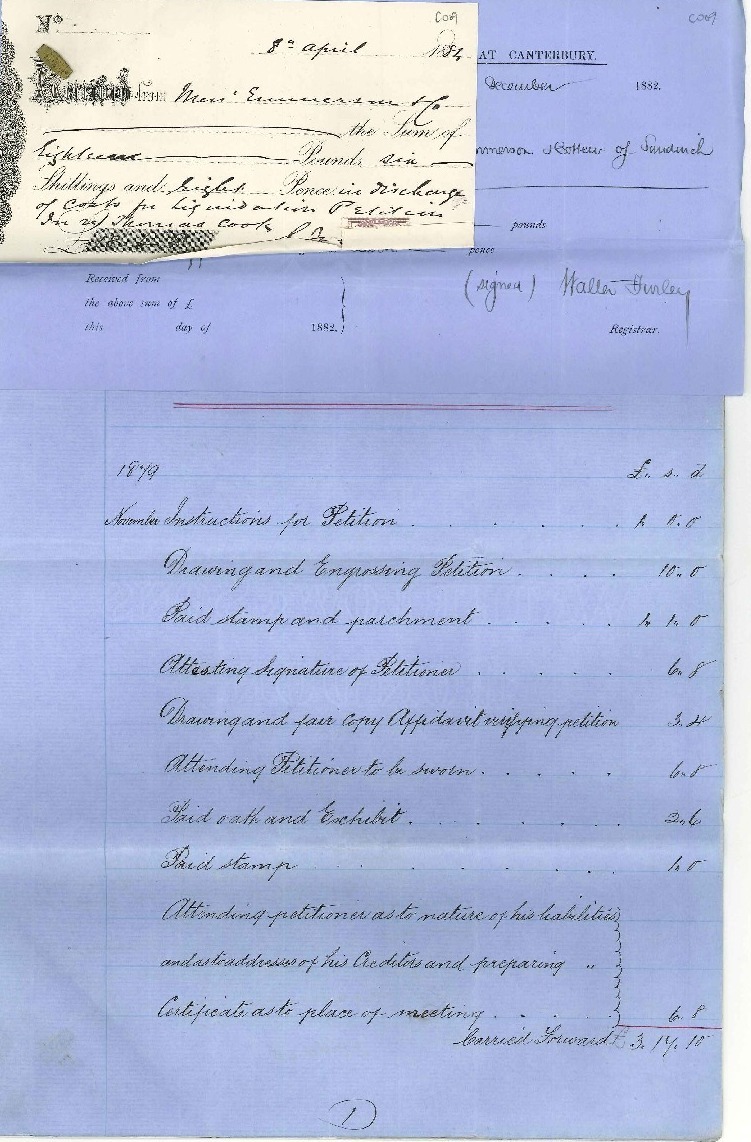 No.
C009
8th April 1884
Received from Messrs Emmerson & Co
the Sum of
Eighteen Pounds six
Shillings and Eight Pence in discharge
of costs for liquidation Petition
In re Thomas Cook
C009
AT CANTERBURY.
December 1882.
mmerson & Cottew of Sandwich
pounds
pence
Received from
the above sum of £
this day of 1882.
(signed) Walter Furley
Registrar.
1879 £. s. d
November Instructions for Petition . . . . .
Drawing and Engrossing Petition . . . . 10. 0
Paid stamp and parchment . . . . 1. 1. 0
Attesting Signature of Petitioner . . . . 6. 8
Drawing and fair copy Affidavit verifying petition 3. 4
Attending Petitioner to be sworn . . . . 6. 8
Paid oath and Exhibit . . . . . 2. 6
Paid stamp . . . . . 1. 0
Attending petitioner as to nature of his liabilities
and as to addresses of his Creditors and preparing "
Certificate as to place of meeting . . . 6. 8
Carried Forward £ 3. 17. 10
1